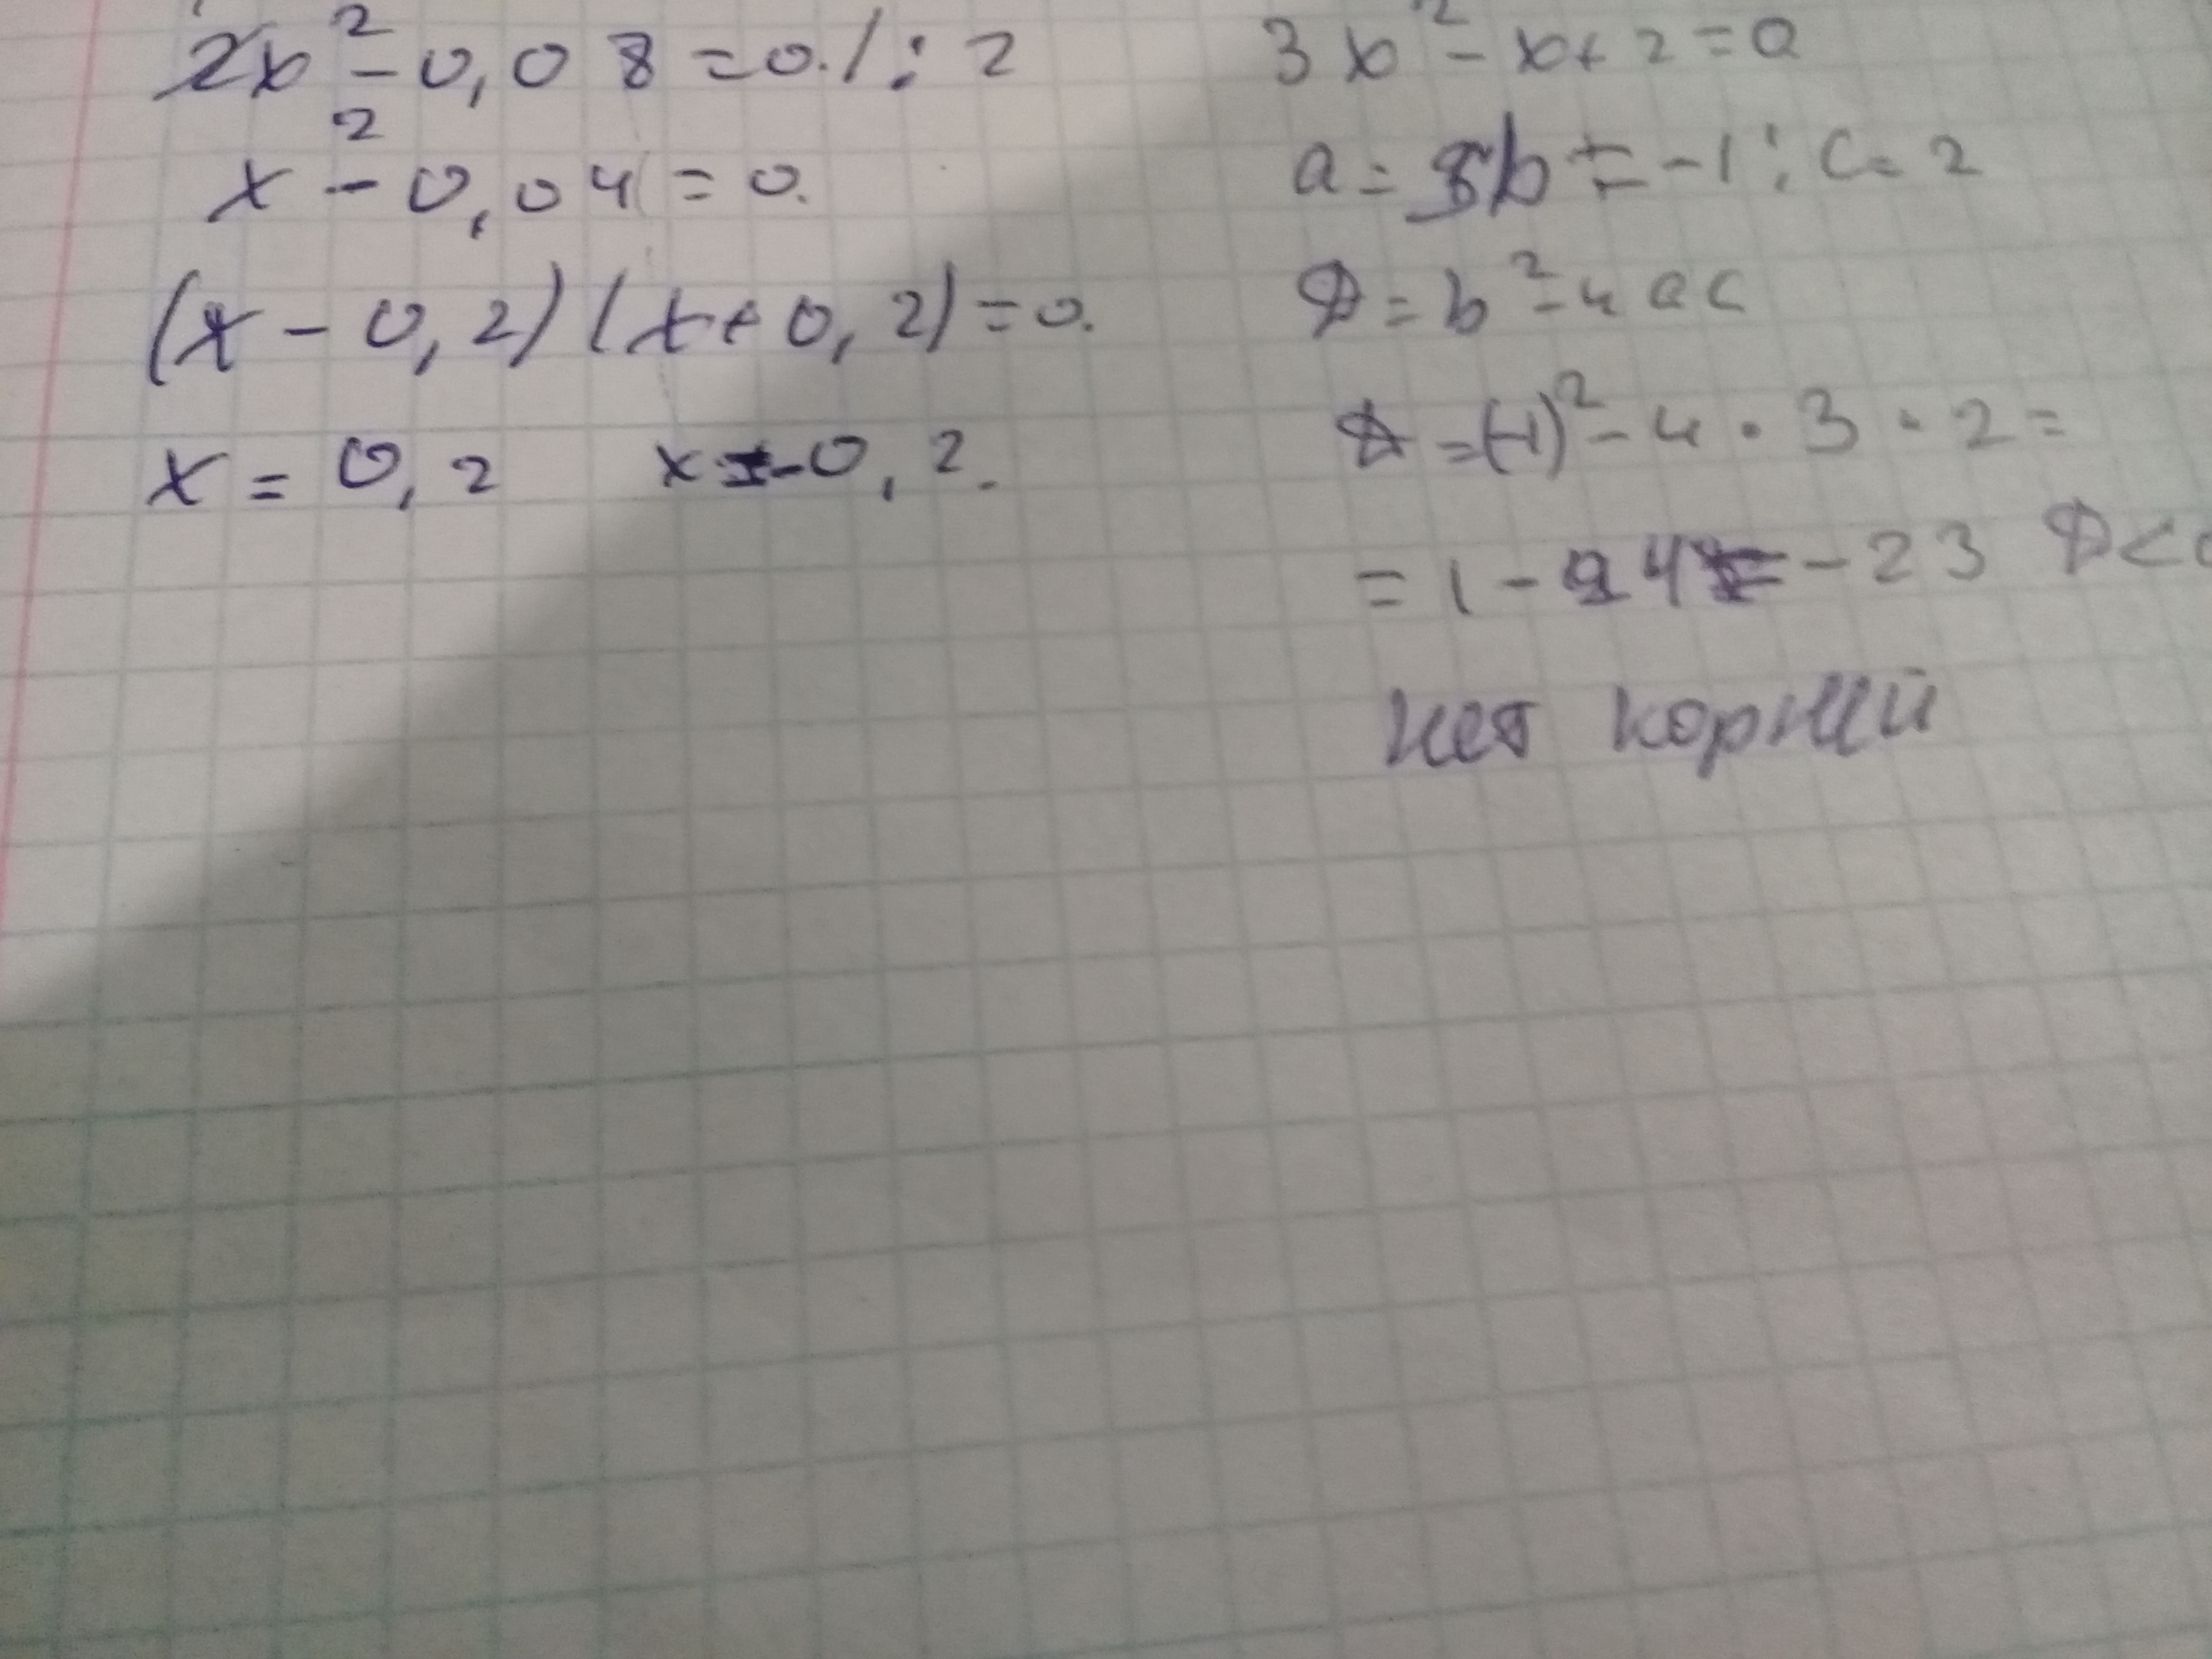 2x² - 0,08 = 0. / : 2
x² - 0,04 = 0.
(x - 0,2) (x + 0,2) = 0.
x = 0,2 x = -0,2.
3x² - x + 2 = 0
a = 3 b = -1; c = 2
D = b² - 4ac
D = (-1)² - 4 · 3 · 2 =
= 1 - 24 = -23 D < 0
нет корней